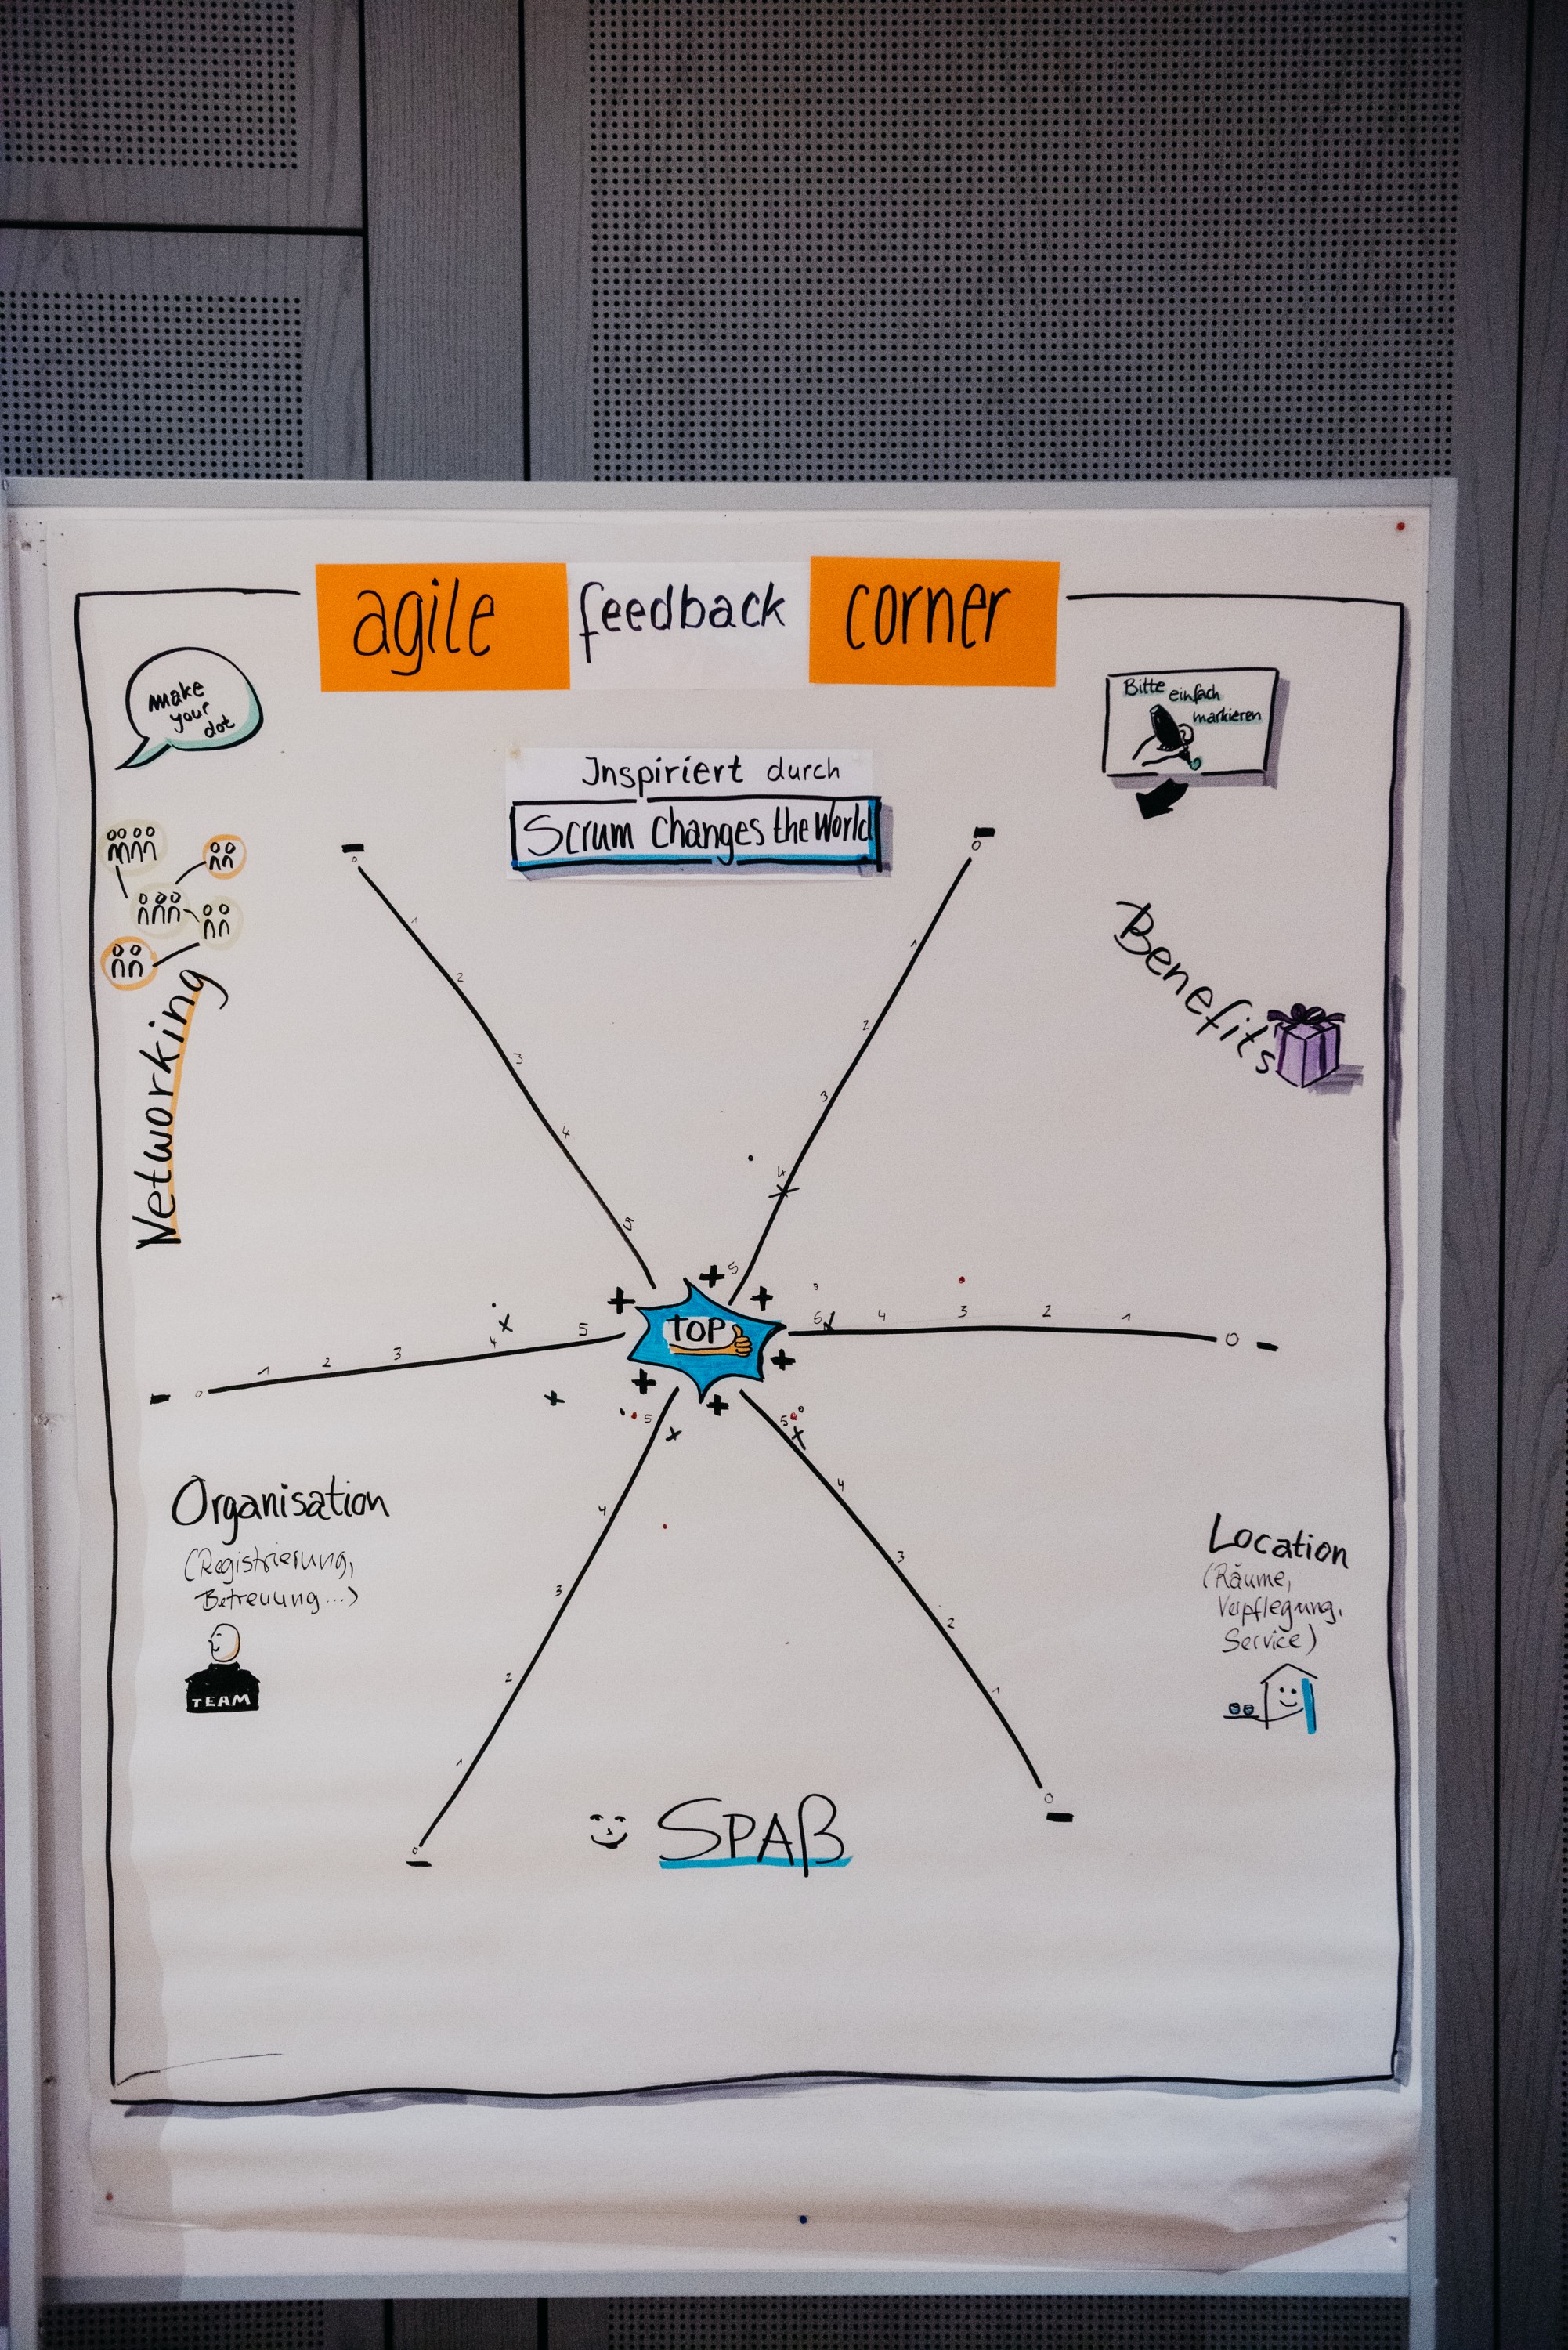 agile feedback corner
make
your
dot
Bitte einfach
markieren
Inspiriert durch
Scrum Changes the World
Networking
Benefits
0
1
2
3
4
5
0
1
2
3
4
5
TOP
1
2
3
4
5
0
5
4
3
2
1
0
Organisation
(Registrierung,
Betreuung...)
TEAM
5
4
3
2
1
0
5
4
3
2
1
0
Location
(Räume,
Verpflegung,
Service)
SPAß